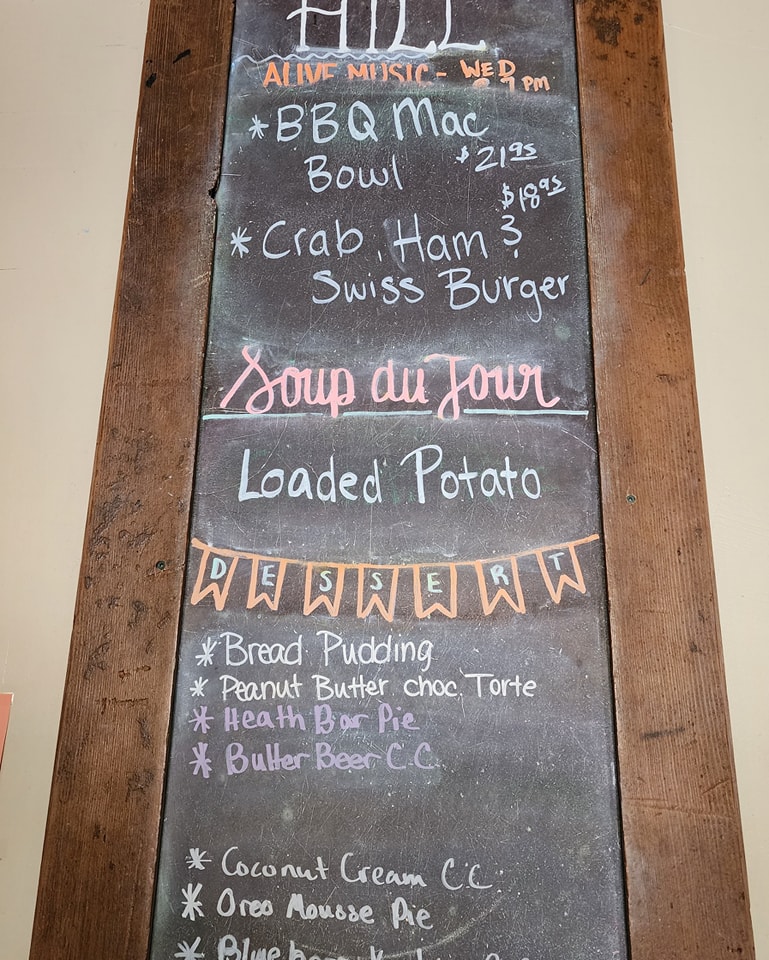 HILL
ALIVE MUSIC - WED
@ 7 PM
* BBQ Mac
Bowl $21.95
$18.95
* Crab, Ham &
Swiss Burger
Soup du Jour
Loaded Potato
DESSERT
* Bread Pudding
* Peanut Butter choc. Torte
* Heath Bar Pie
* Butter Beer C.C.
* Coconut Cream C.C.
* Oreo Mousse Pie
* Blueberry